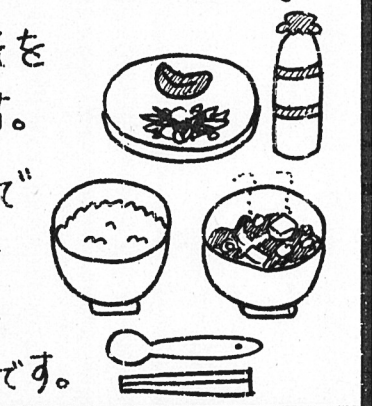 を
す。
で
です。